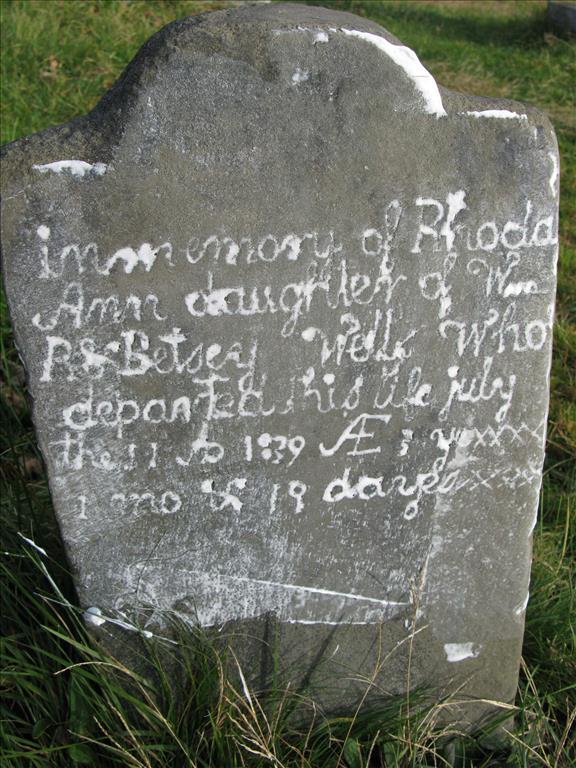 in memory of Rhoda
Ann daughter of Wm
R & Betsey Wells Who
departed this life july
the 11 1839 Æ 3 y xxxxx
1 mo & 19 days xxxxx